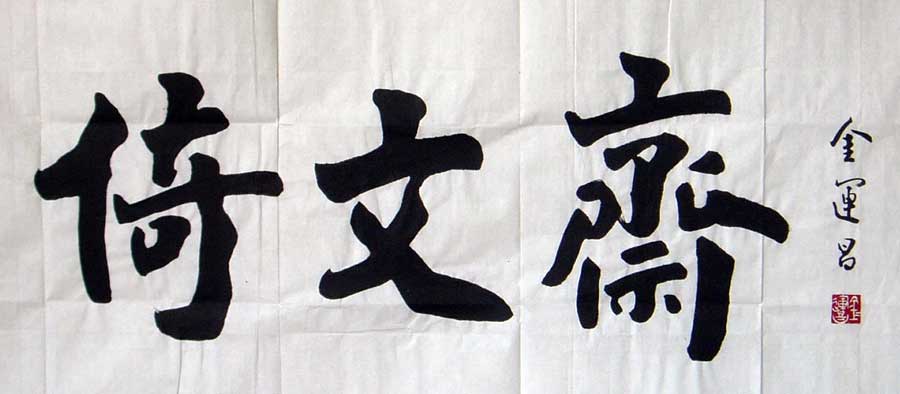 倚文齋
金運昌